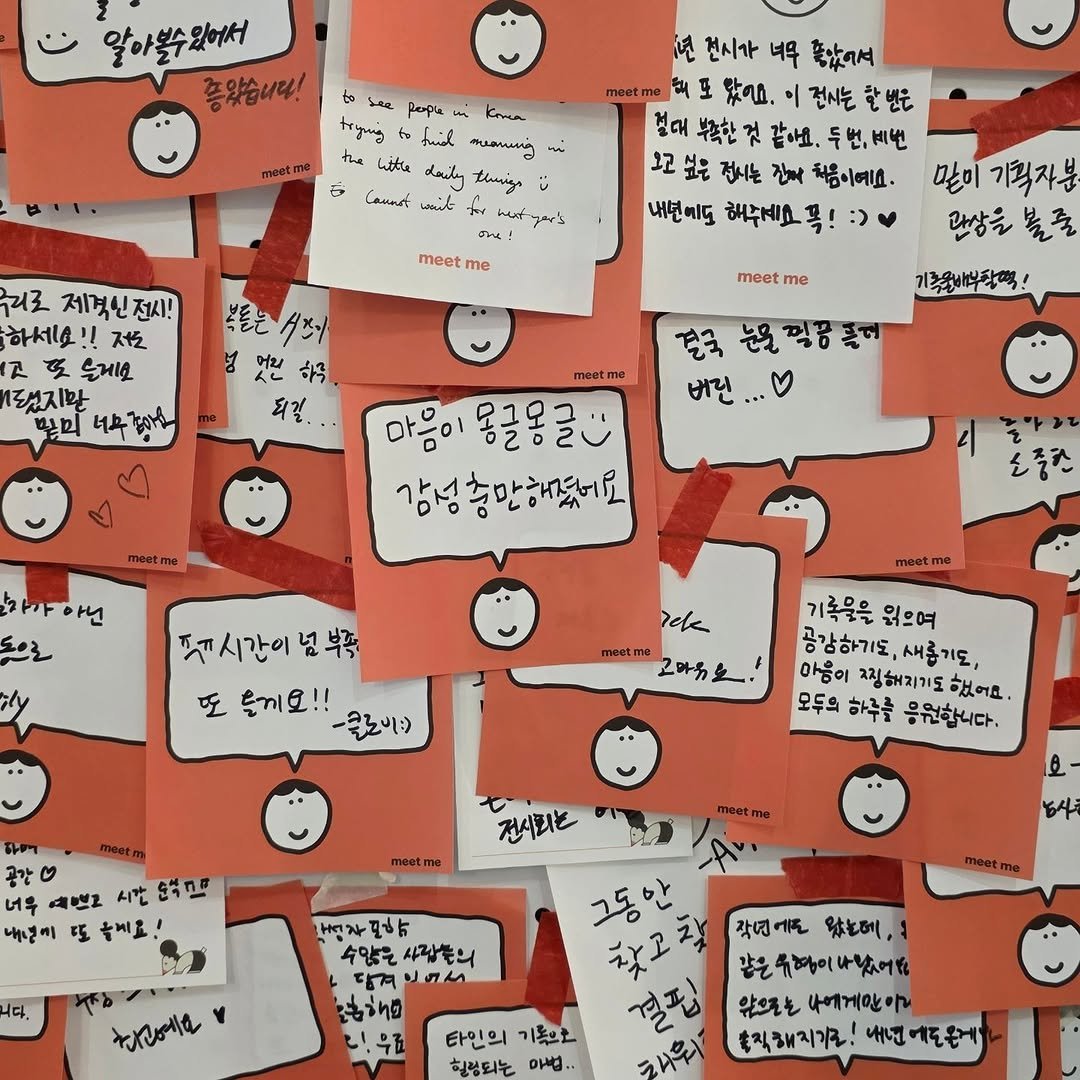 알아볼수있어서
좋았습니다!
meet me
meet me
to see people in Korea
trying to find meaning in
the little daily things
Cannot wait for next year's
one!
meet me
전시가 너무 좋았어서
또 왔어요. 이 전시는 한 번은
절대 부족한 것 같아요. 두 번, 세 번
오고 싶은 전시는 진짜 처음이에요.
내년에도 해주세요 꼭! :) ♥
meet me
밑미 기획자분
관상을 볼 줄
제격인 전시!
하세요!! 저도
또 올게요
밑미 너무 좋아요
meet me
멋진 하루
되길...
me
meet me
마음이 몽글몽글
감성충만해졌어요
meet me
결국 눈물 찔끔 흘려
버린...♡
meet me
소중한
아닌
ㅠㅠ 시간이 넘 부족
또 올게요!!
-클로비:)
meet me
고마워요!
meet me
기록물을 읽으며
공감하기도, 새롭기도,
마음이 찡해지기도 했어요.
모두의 하루를 응원합니다.
meet me
meet me
전시회는
공간♡
너무 예쁘고 시간 순삭
내년에 또 올게요!
그동안
찾고
결핍
작성자 포함
수많은 사람들의
타인의 기록으로
힐링되는 마법..
작년에도 왔는데,
같은 유형이 나왔어
앞으로는 나에게만
솔직해지기로! 내년에도 올게